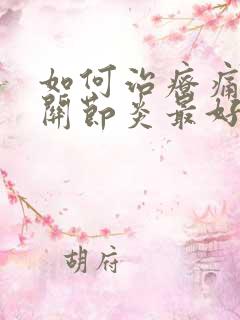 如何治療痛
關節炎最好
胡府